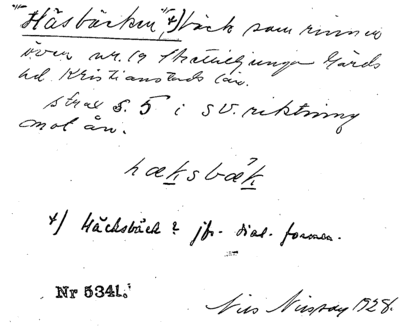 Häsbäcken, x) bäck som rinner
över nr. 19 Gärds
hd. Kristianstads län.
strax S. 5 i SV. riktning
mot ån.
hæksbæ´k
x) Häcksbäck? jfr. dial. formen.
Nr 5341.
Nils 1928.